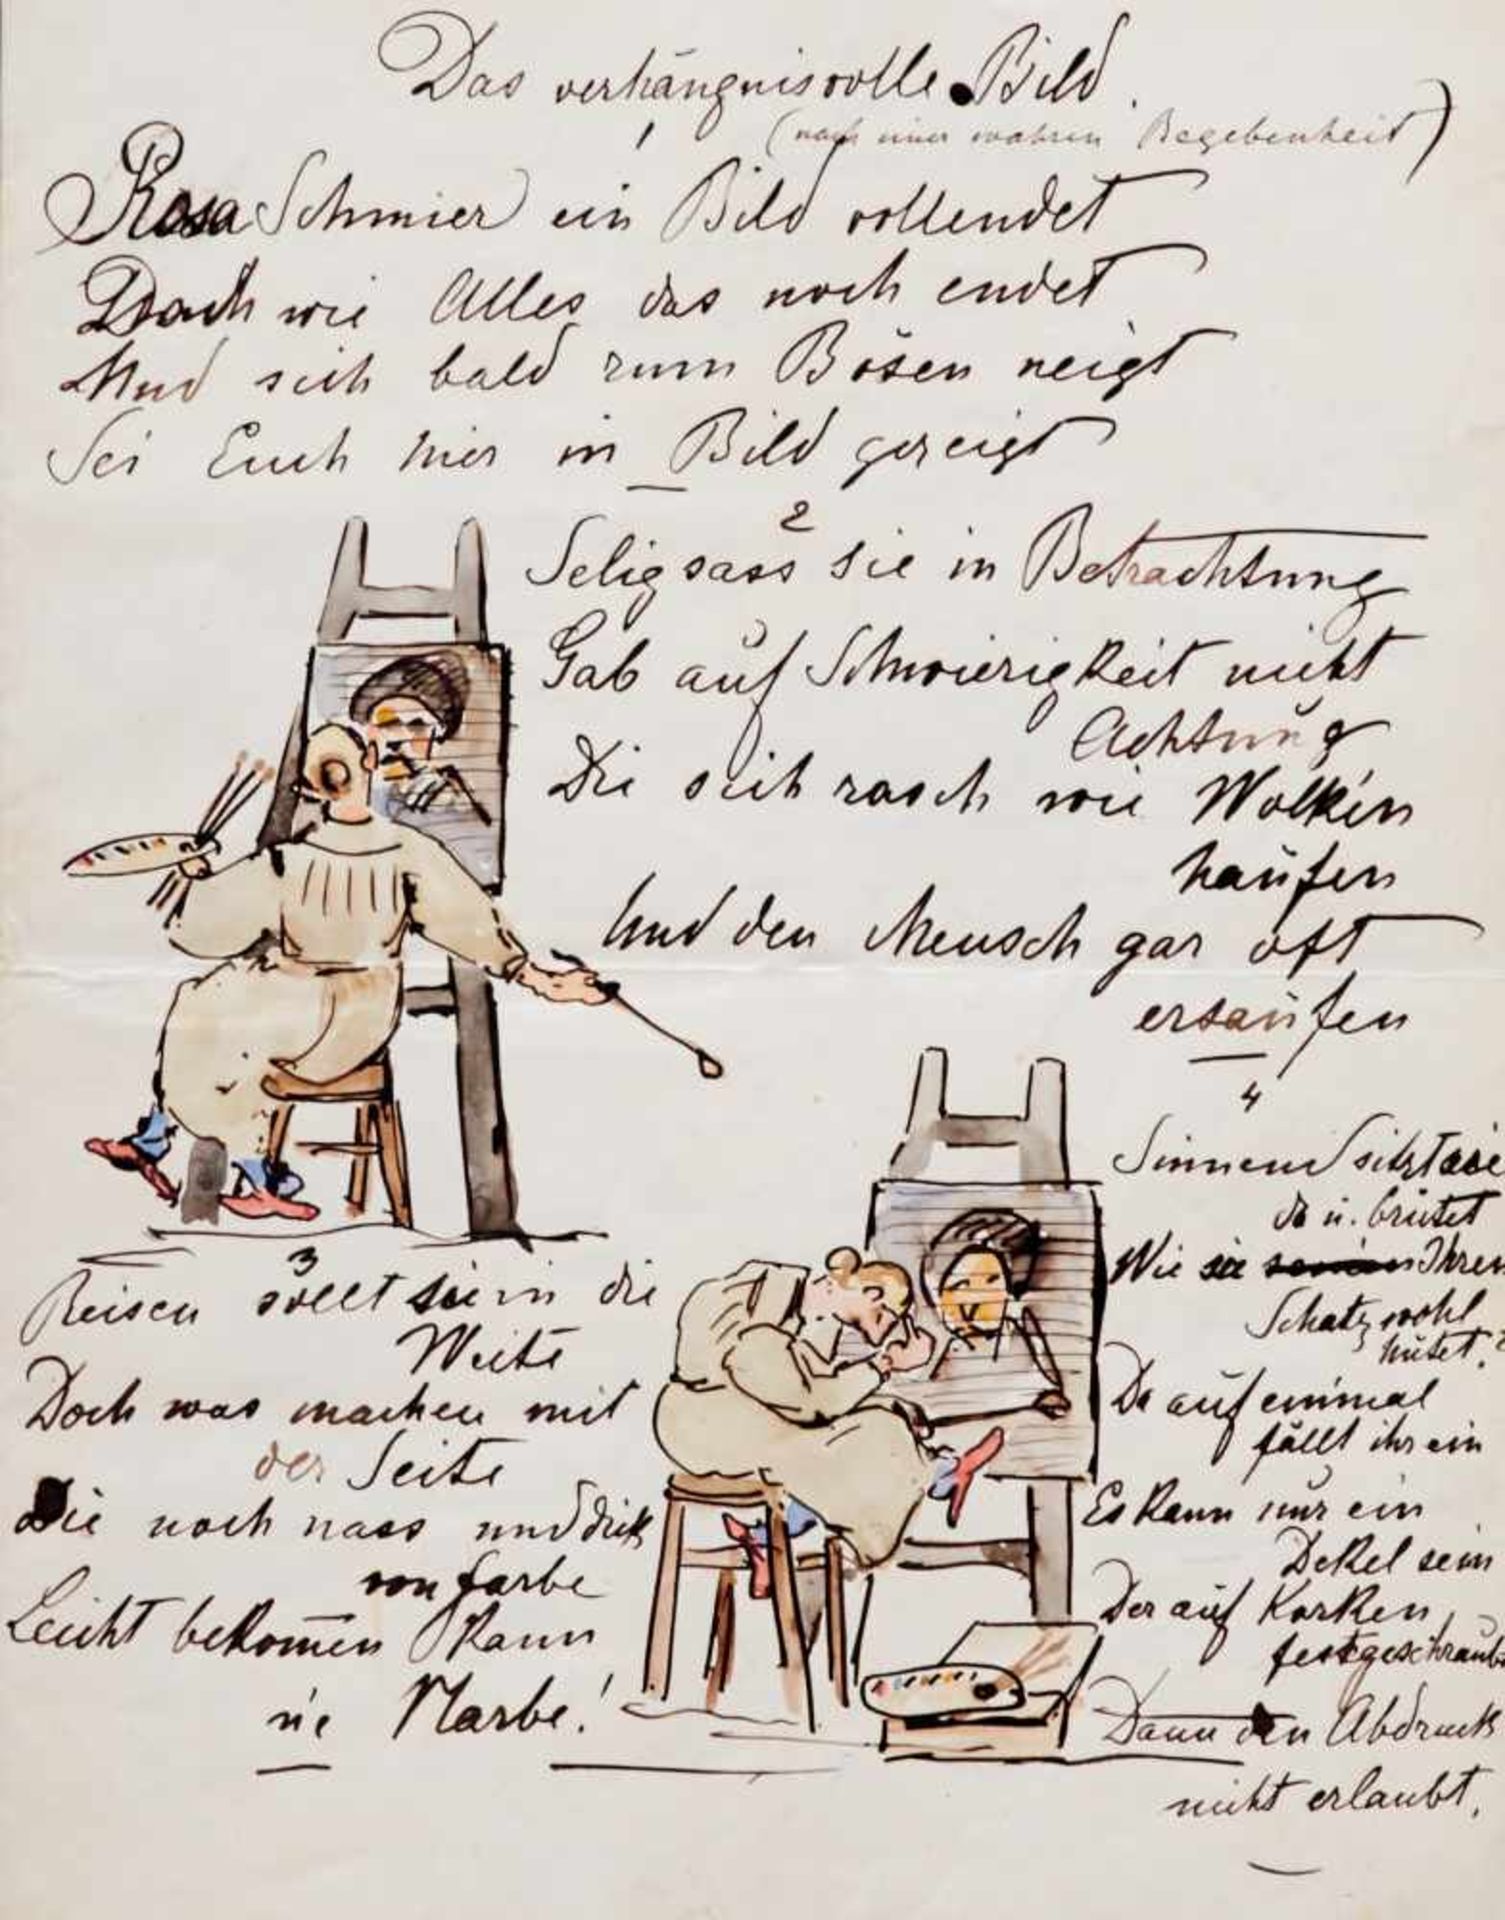 Das verhängnisvolle Bild.
(nach einer wahren Begebenheit)
1
Rosa Schmier ein Bild vollendet
Doch wie Alles das noch endet
Und sich bald zum Bösen neigt
Sei Euch hier in Bild gezeigt
2
Selig sass sie in Betrachtung
Gab auf Schwierigkeit nicht
Achtung
Die sich rasch wie Wolken
häufen
Und den Mensch gar oft
ersäufen
3
Reisen sollt sie in die
Weite
Doch was machen mit
der Seite
Die noch nass und dick
von Farbe
Leicht bekom̄en kann
'ne Narbe!
4
Sinnend sitzt sie
da u. brütet
Wie sie Ihren
Schatz wohl
hütet?
Da auf einmal
fällt ihr ein
Es kann nur ein
Dekel sein
Der auf Korken
festgeschraubt
Dann den Abdruck
nicht erlaubt.